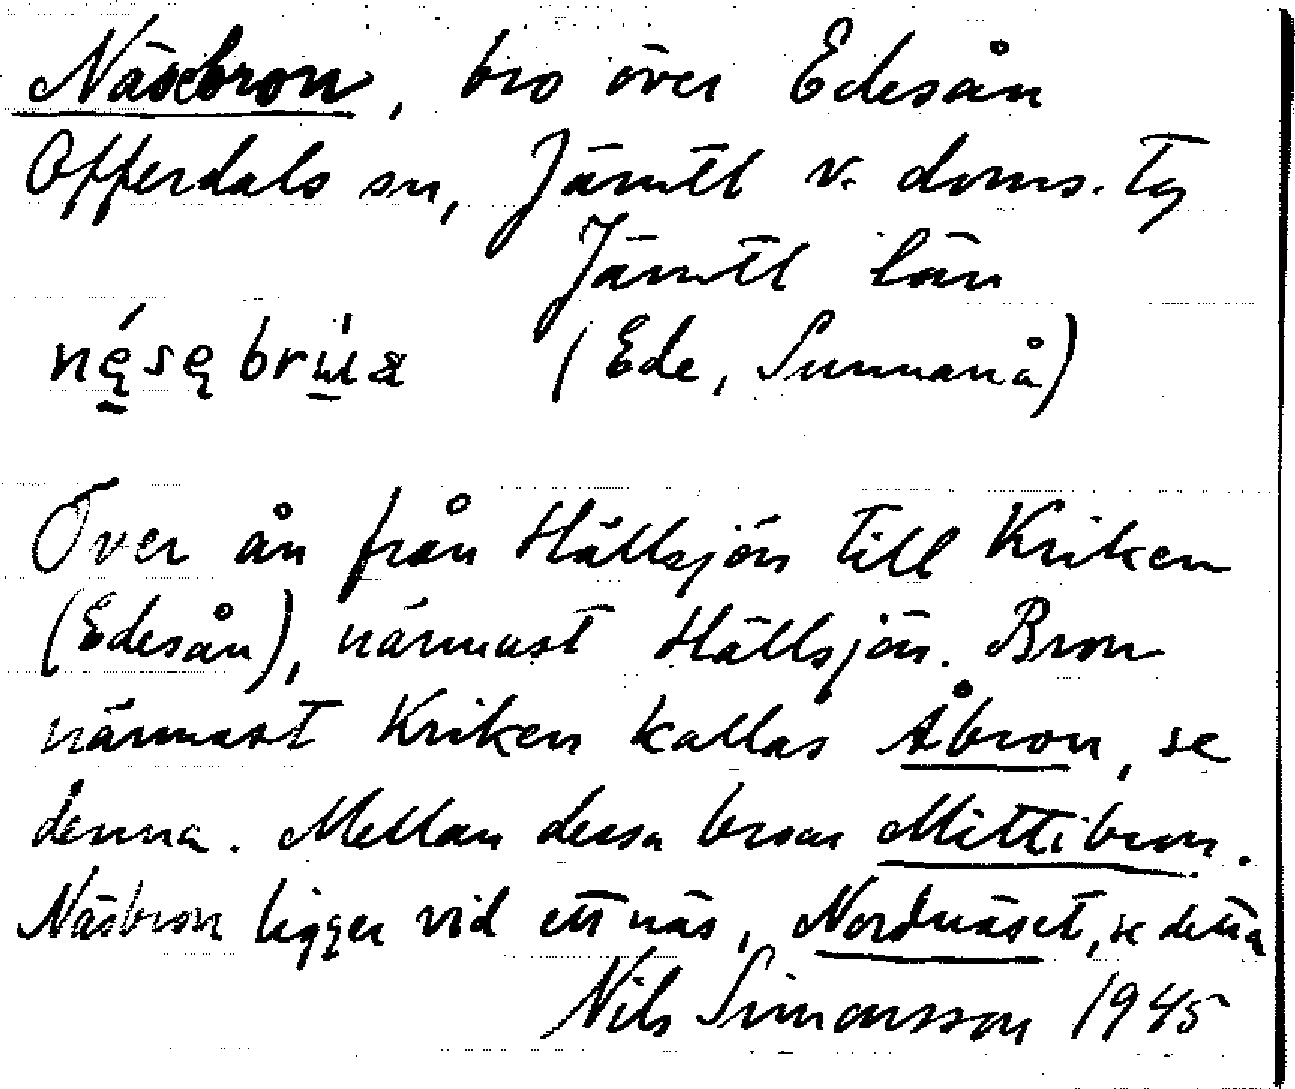 Näsebron, bro över Edesån
Offerdals sn, Jämtl v. doms. tg
Jämtl län
nę́sębrɯ́a (Ede, Sunnanå)
Över ån från Hällsjön till Kriken
(Edesån), närmast Hällsjön. Bron
närmast Kriken kallas Åbron, se
denna. Mellan dessa broar Mittibron.
Näsbron ligger vid ett näs, Nordnäset, se detta
Nils Simonsson 1945